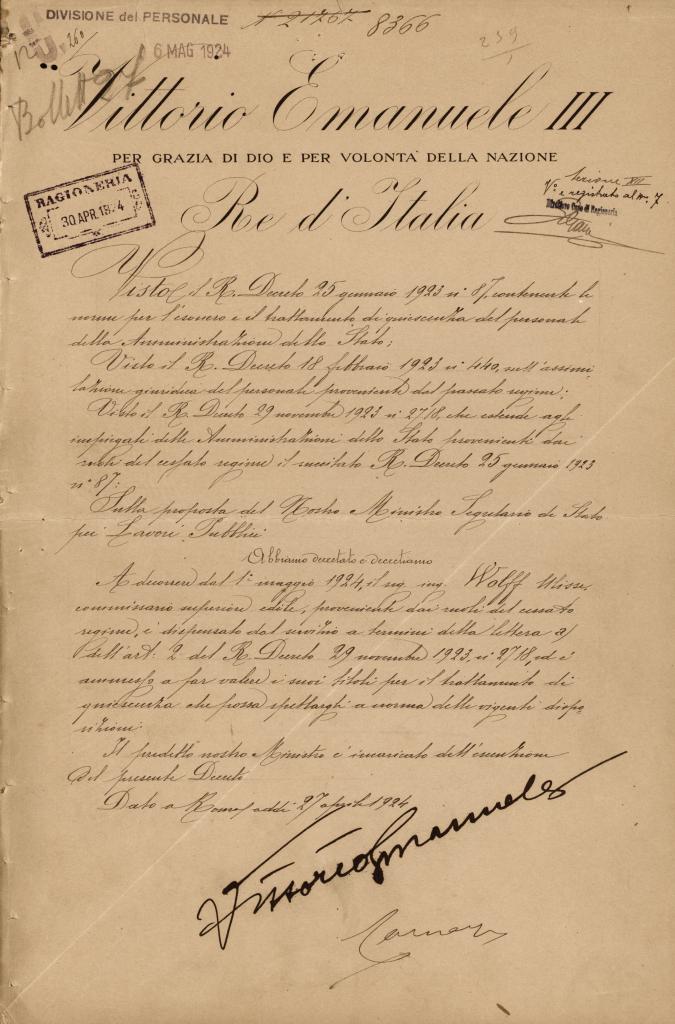 DIVISIONE del PERSONALE
N 21767 8366
6 MAG 1924
239
Bollett 27
Vittorio Emanuele III
PER GRAZIA DI DIO E PER VOLONTÀ DELLA NAZIONE
RAGIONERIA
30 APR. 1924
Re d'Italia
Sezione VII
Vº e registrato al nº 7
Visto il R. Decreto 25 gennaio 1923 nº 87, contenente le
norme per l'esonero e il trattamento di quiescenza del personale
della Amministrazione dello Stato;
Visto il R. Decreto 18 febbraio 1923 nº 440, sull'assimi-
lazione giuridica del personale proveniente dal passato regime;
Visto il R. Decreto 29 novembre 1923 nº 2718, che estende agli
impiegati delle Amministrazioni dello Stato provenienti dai
ruoli del cessato regime il succitato R. Decreto 25 gennaio 1923
nº 87;
Sulla proposta del Nostro Ministro Segretario di Stato
pei Lavori Pubblici
Abbiamo decretato e decretiamo
A decorrere dal 1º maggio 1924, il sig. ing. Wolff Ulisse,
commissario superiore edile, proveniente dai ruoli del cessato
regime, è dispensato dal servizio a termini della lettera a)
dell'art. 2 del R. Decreto 29 novembre 1923, nº 2718, ed è
ammesso a far valere i suoi titoli per il trattamento di
quiescenza che possa spettargli a norma delle vigenti dispo-
sizioni.
Il predetto nostro Ministro è incaricato dell'esecuzione
del presente Decreto
Dato a Roma, addì 27 aprile 1924
Vittorio Emanuele